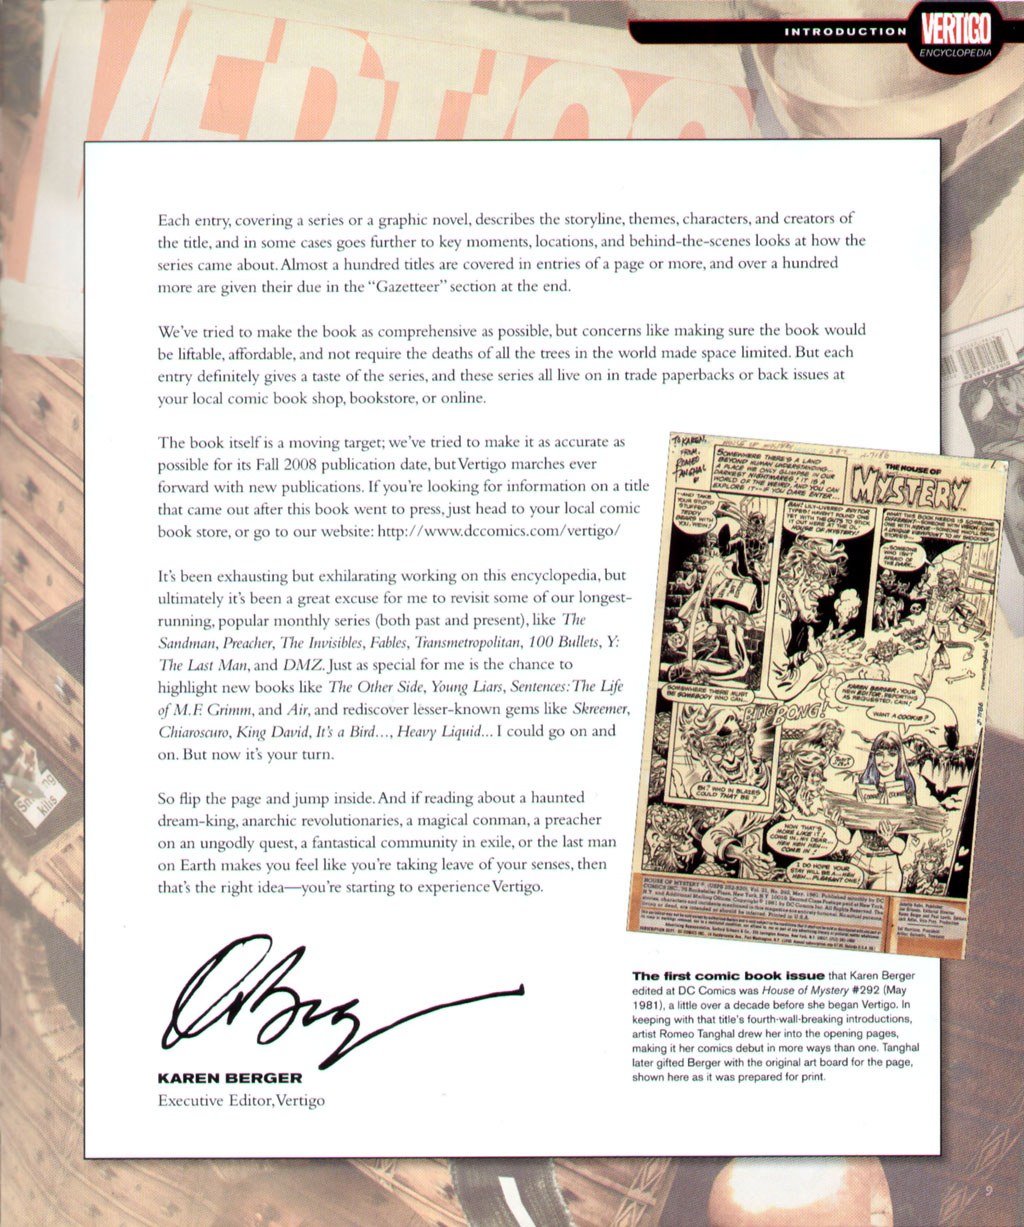 INTRODUCTION
VERTIGO
ENCYCLOPEDIA
VERTIGO
Each entry, covering a series or a graphic novel, describes the storyline, themes, characters, and creators of
the title, and in some cases goes further to key moments, locations, and behind-the-scenes looks at how the
series came about. Almost a hundred titles are covered in entries of a page or more, and over a hundred
more are given their due in the “Gazetteer” section at the end.
We’ve tried to make the book as comprehensive as possible, but concerns like making sure the book would
be liftable, affordable, and not require the deaths of all the trees in the world made space limited. But each
entry definitely gives a taste of the series, and these series all live on in trade paperbacks or back issues at
your local comic book shop, bookstore, or online.
The book itself is a moving target; we’ve tried to make it as accurate as
possible for its Fall 2008 publication date, but Vertigo marches ever
forward with new publications. If you’re looking for information on a title
that came out after this book went to press, just head to your local comic
book store, or go to our website: http://www.dccomics.com/vertigo/
It’s been exhausting but exhilarating working on this encyclopedia, but
ultimately it’s been a great excuse for me to revisit some of our longest-
running, popular monthly series (both past and present), like The
Sandman, Preacher, The Invisibles, Fables, Transmetropolitan, 100 Bullets, Y:
The Last Man, and DMZ. Just as special for me is the chance to
highlight new books like The Other Side, Young Liars, Sentences: The Life
of M.F. Grimm, and Air, and rediscover lesser-known gems like Skreemer,
Chiaroscuro, King David, It’s a Bird..., Heavy Liquid... I could go on and
on. But now it’s your turn.
So flip the page and jump inside. And if reading about a haunted
dream-king, anarchic revolutionaries, a magical conman, a preacher
on an ungodly quest, a fantastical community in exile, or the last man
on Earth makes you feel like you’re taking leave of your senses, then
that’s the right idea—you’re starting to experience Vertigo.
KAREN BERGER
Executive Editor, Vertigo
TO KAREN,
FROM
ROMEO
TANGHAL
HOUSE OF MYSTERY
SOMEWHERE THERE'S A LAND
BEYOND HUMAN UNDERSTANDING...
A PLACE WE ONLY GLIMPSE IN OUR
DARKEST NIGHTMARES! IT IS A
WORLD OF THE WEIRD, AND YOU CAN
EXPLORE IT--IF YOU DARE ENTER...
THE HOUSE OF
MYSTERY
...AND TAKE
YOUR STUPID
STUFFED
TEDDY
BEARS WITH
YOU, WEIN!
BAH! LILY-LIVERED EDITOR
TYPES! HAVEN'T FOUND ONE
YET WITH THE GUTS TO STICK
IT OUT HERE AT MY
HOUSE OF MYSTERY!
...SOMEONE
WHO ISN'T
AFRAID OF
THE DARK...
SOMEWHERE THERE MUST
BE SOMEBODY WHO CAN...
BING BONG!
EH? WHO IN BLAZES
COULD THAT BE?
KAREN BERGER, YOUR
NEW EDITOR, REPORTING
AS REQUESTED, CAIN!
WANT A COOKIE?
NOW THAT'S
MORE LIKE IT!
COME IN, MY DEAR.
HEH HEH HEH...
COME IN!
I DO HOPE YOUR
STAY WILL BE A...HEH
HEH...PLEASANT ONE!
The first comic book issue that Karen Berger
edited at DC Comics was House of Mystery #292 (May
1981), a little over a decade before she began Vertigo. In
keeping with that title’s fourth-wall-breaking introductions,
artist Romeo Tanghal drew her into the opening pages,
making it her comics debut in more ways than one. Tanghal
later gifted Berger with the original art board for the page,
shown here as it was prepared for print.
9